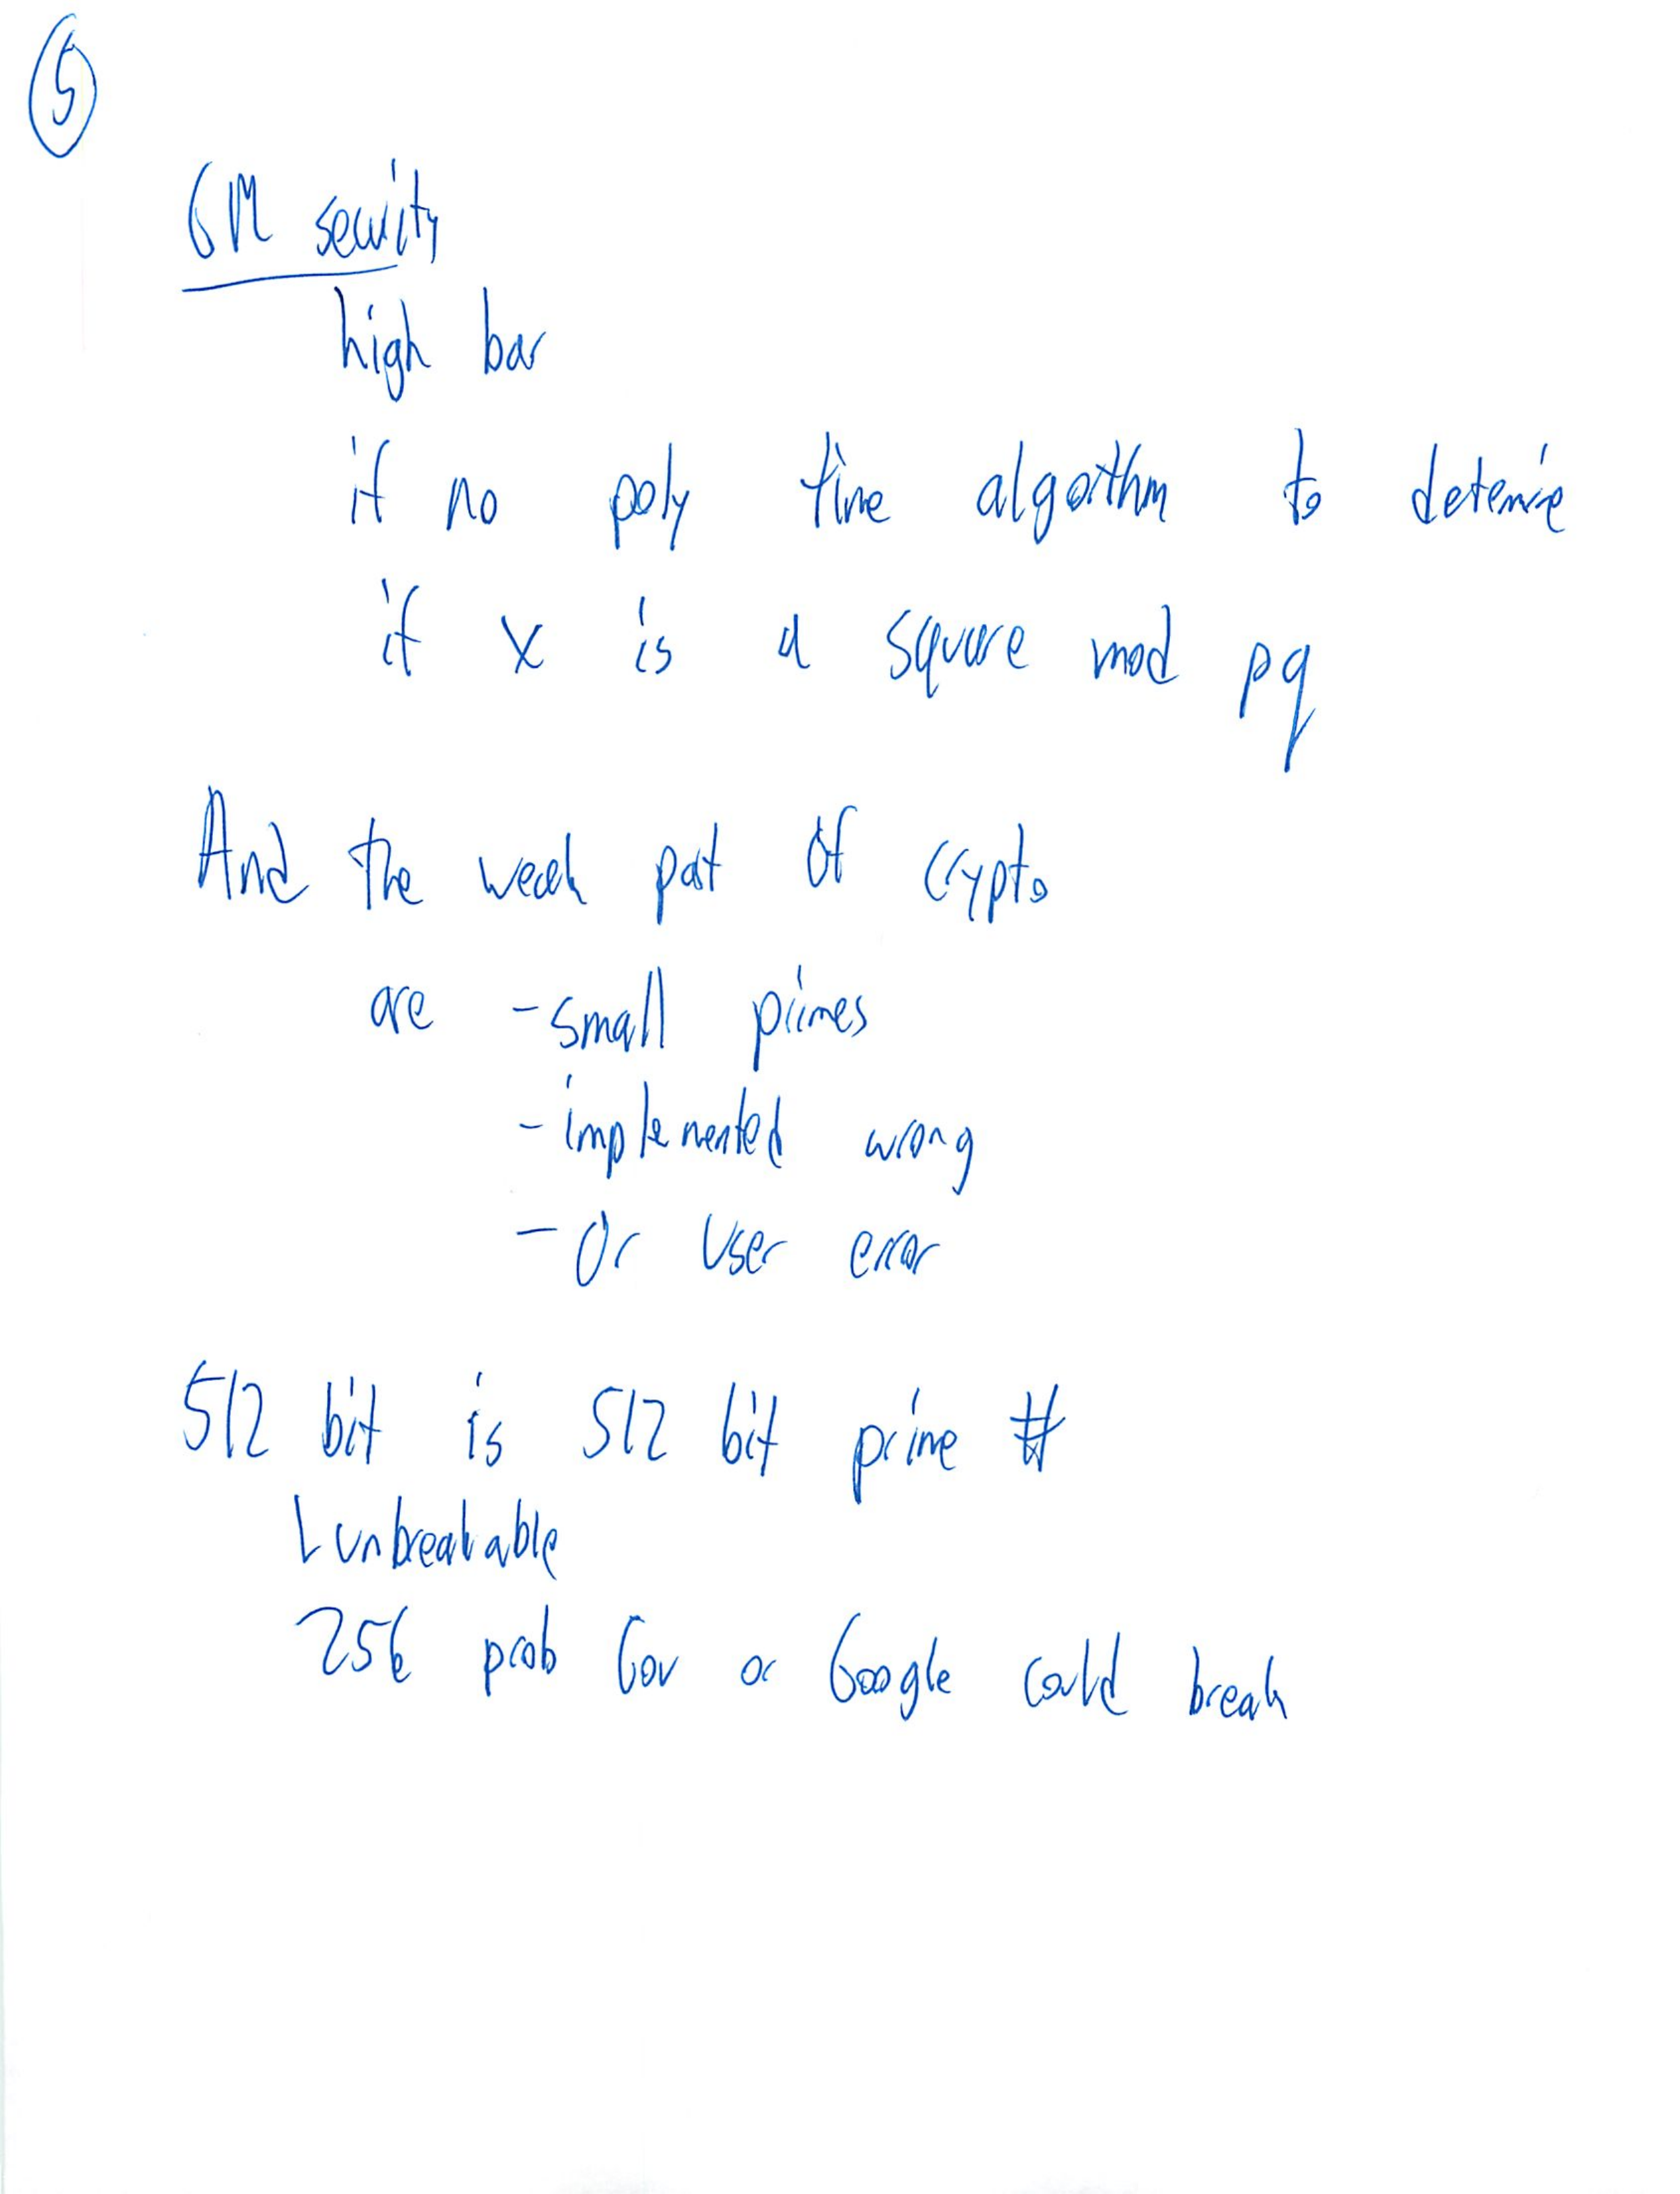 5
GM security
high bar
if no poly time algorithm to determine
if x is a square mod pq
And the weak part of crypto
are - small primes
- implemented wrong
- Or user error
512 bit is 512 bit prime #
unbreakable
256 prob Gov or Google could break